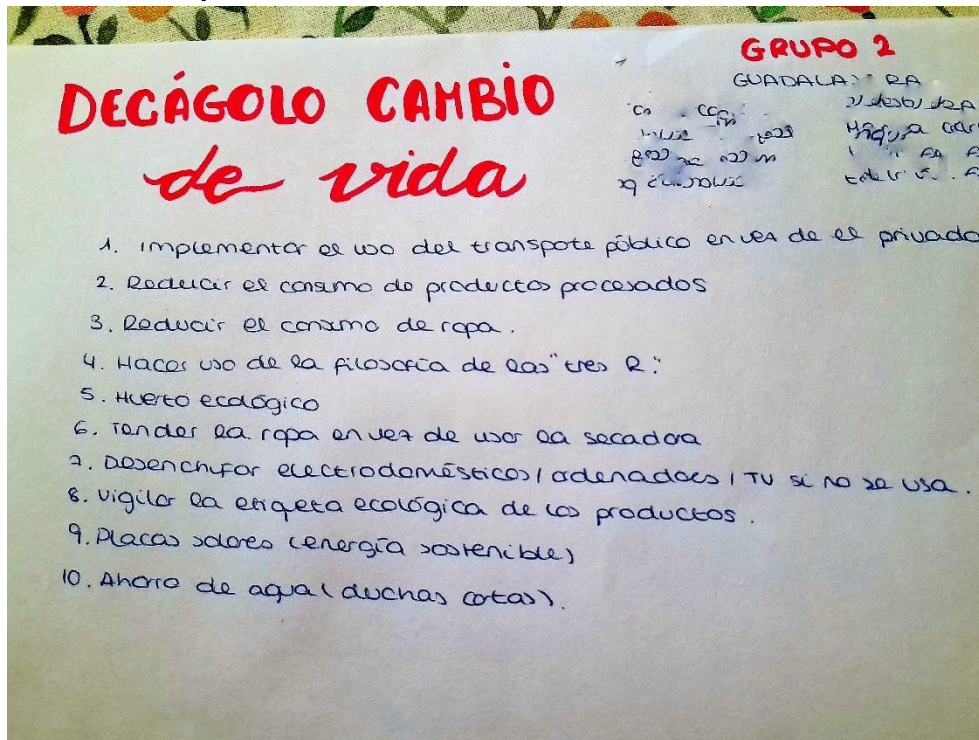 GRUPO 2
DECÁGOLO CAMBIO
de vida
1. Implementar el uso del transpote público en vez de el privado
2. Reducir el consumo de productos procesados
3. Reducir el consumo de ropa.
4. Hacer uso de la filosofía de las "tres R".
5. Huerto ecológico
6. Tender la ropa en vez de usar la secadora
7. Desenchufar electrodomésticos / ordenadores / TV si no se usa.
8. Vigilar la etiqueta ecológica de los productos.
9. Placas solares (energía sostenible)
10. Ahorro de agua (duchas cortas).